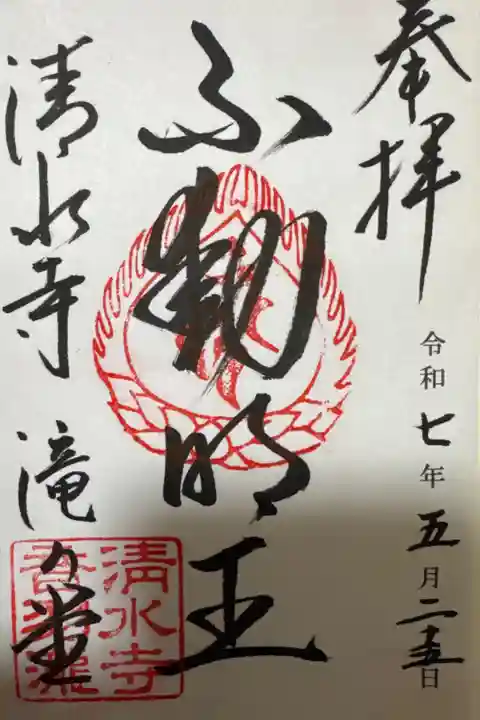 奉拝
令和七年五月二十五日
不動明王
清水寺 滝之堂
清水寺
音羽瀧